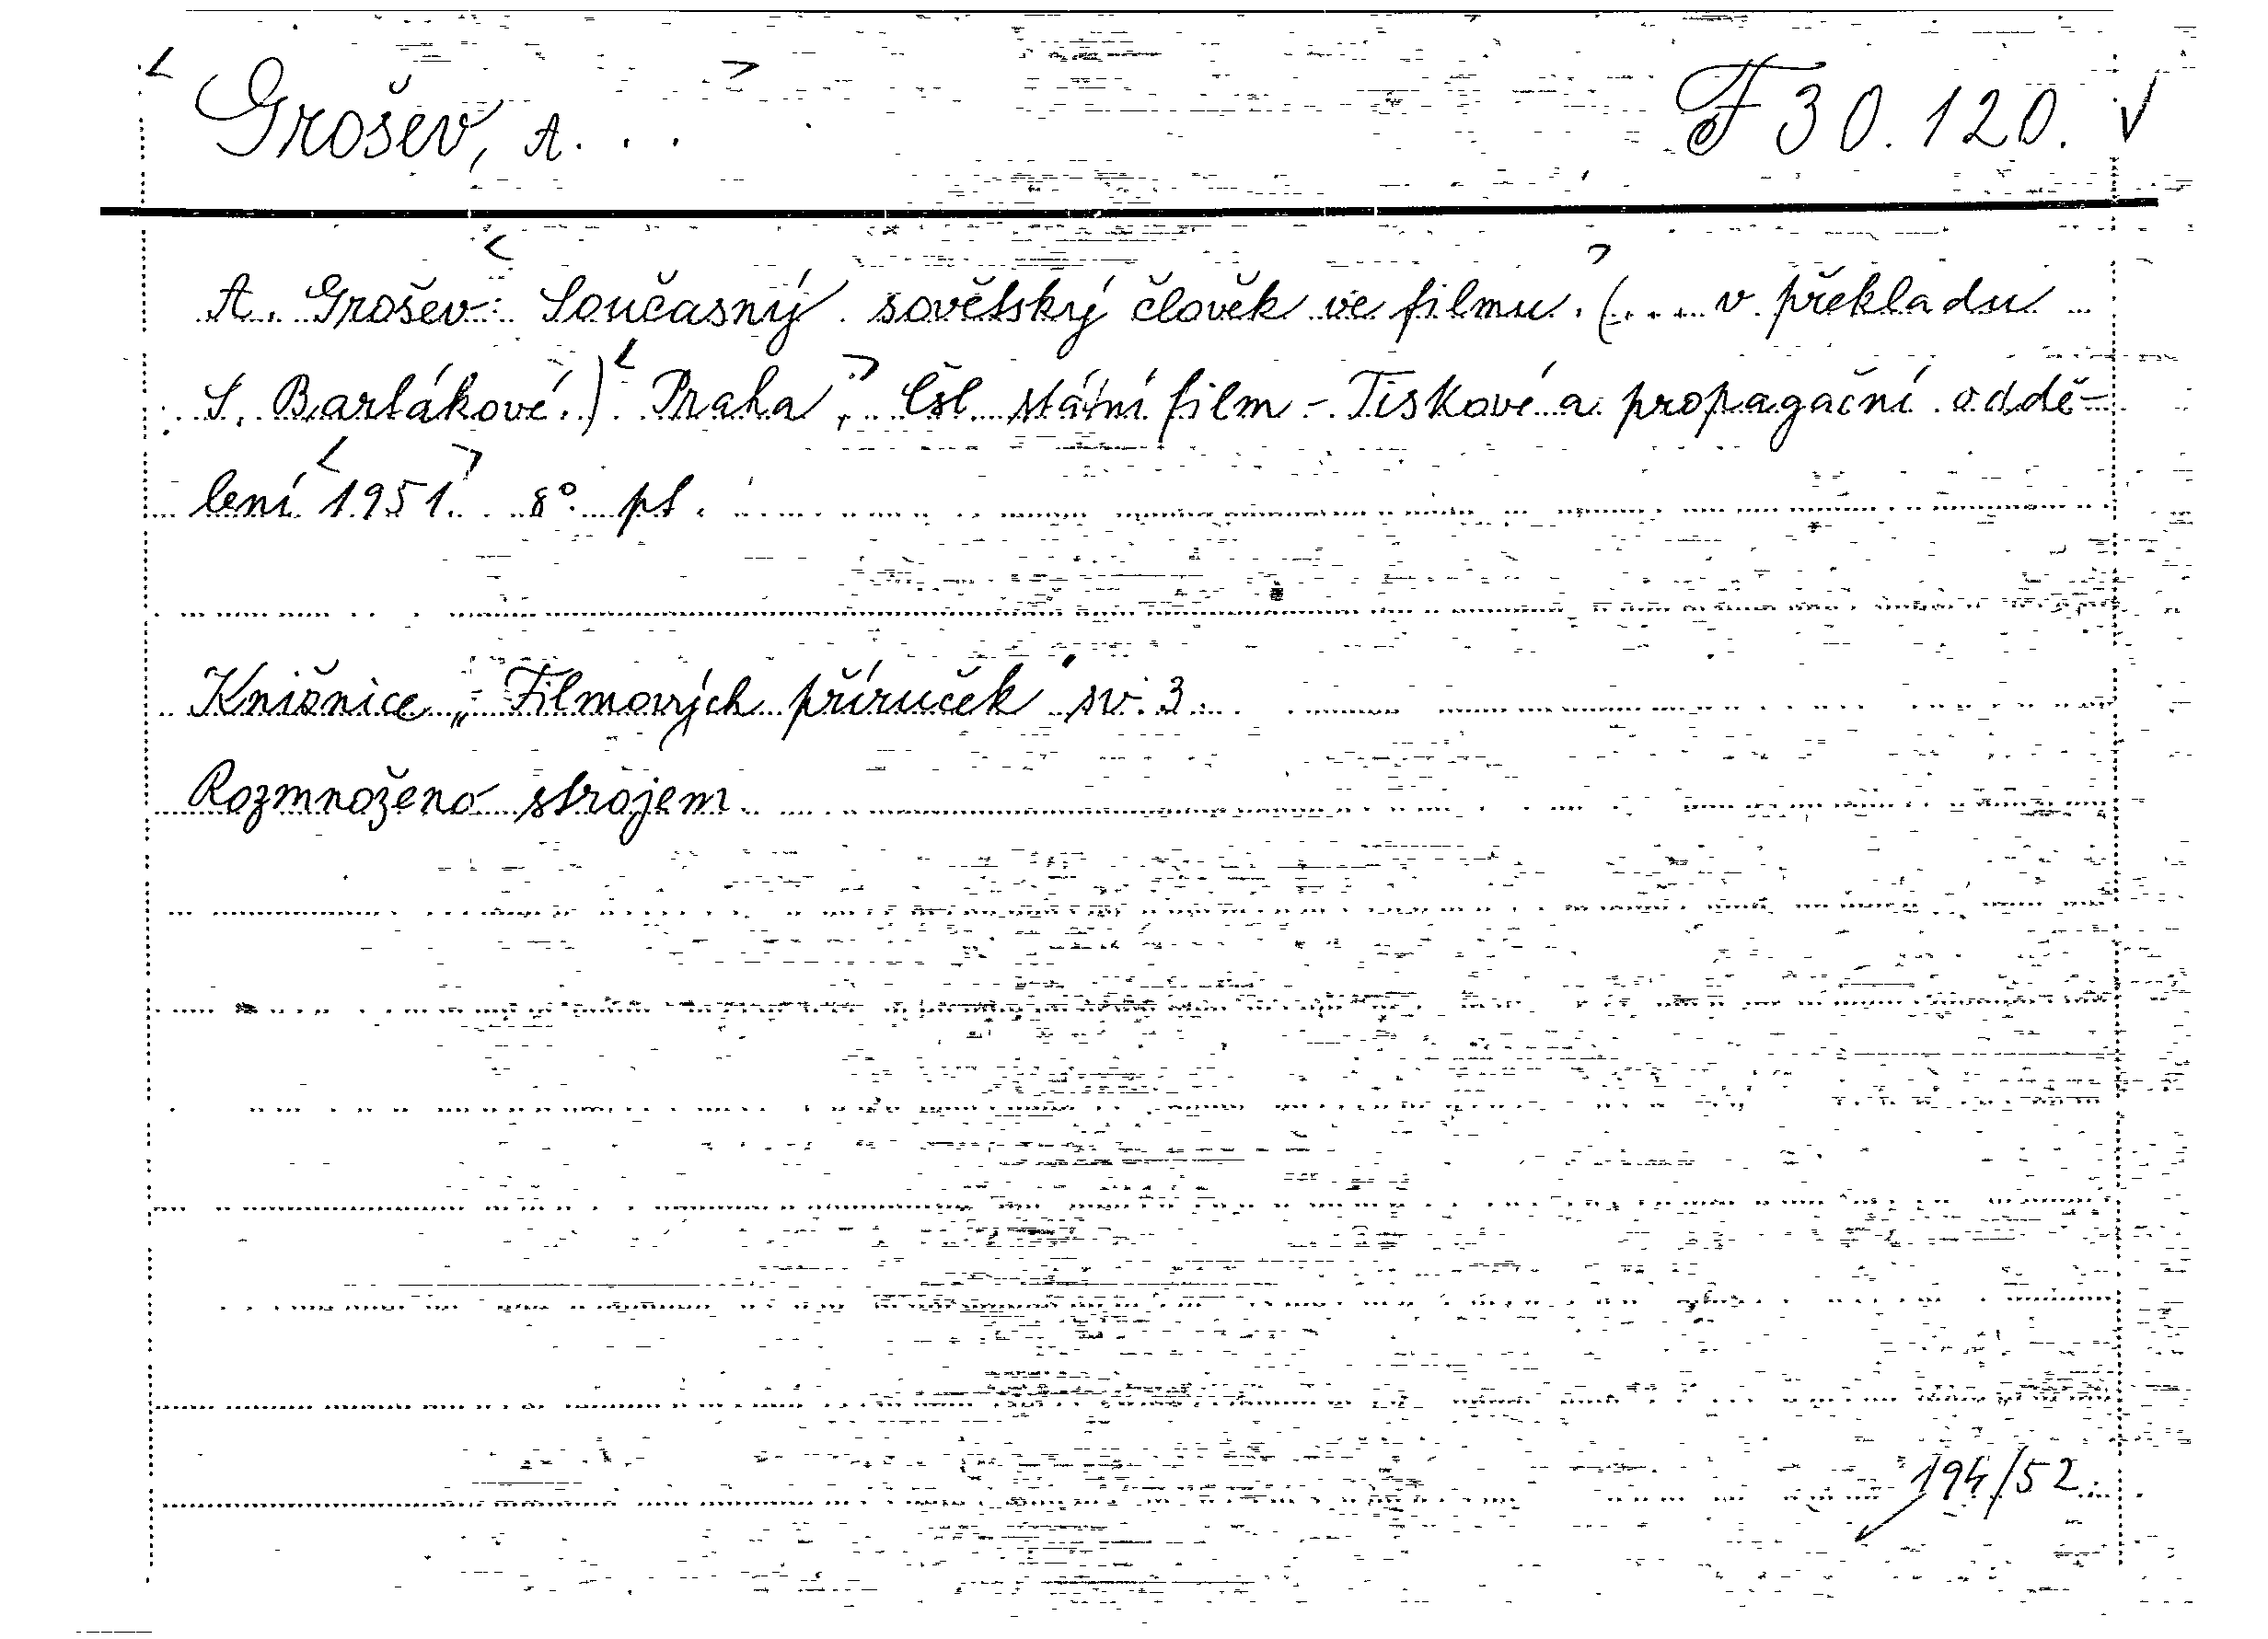 < Grošev, A. . . > F 30.120. √
A. Grošev: < Současný sovětský člověk ve filmu. > (... v překladu
S. Bartákové.) < Praha, > Čsl. státní film - Tiskové a propagační oddě-
lení < 1951. > 8°. pl.
Knižnice „Filmových příruček" sv. 3.
Rozmnoženo strojem.
194/52